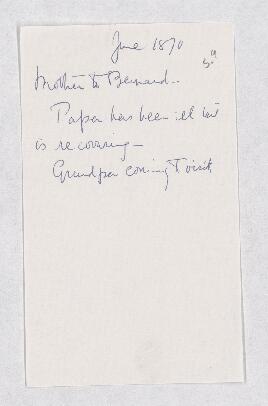 June 1870
Mother to Bernard..
Papa has been ill but
is recovering -
Grandpa coming to visit